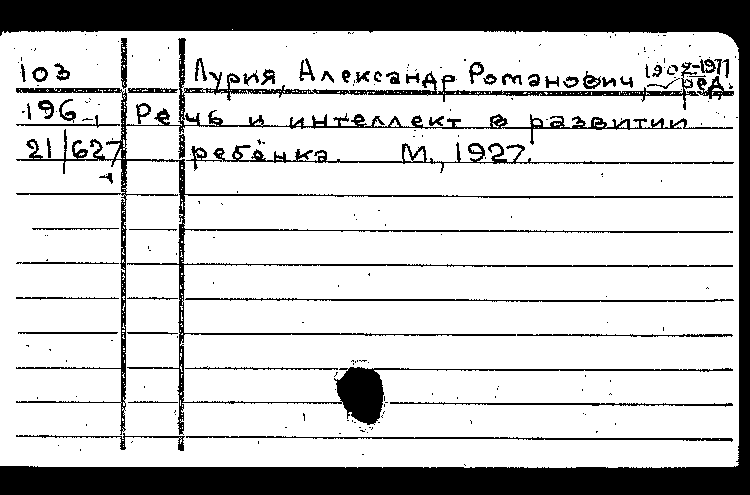 103 Лурия, Александр Романович, 1902-1977 ред.
196 Речь и интеллект в развитии
21/627 ребёнка. М., 1927.